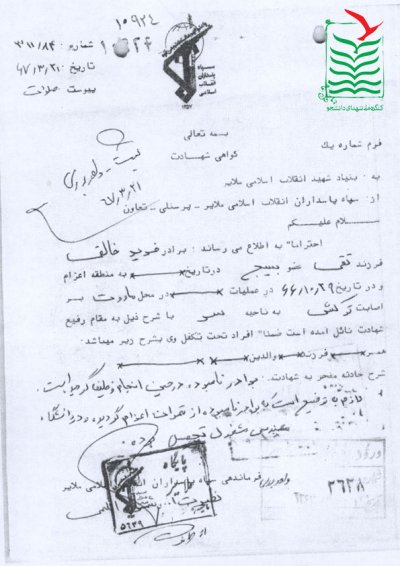 ۱۰۹۲۴
شماره : ۳۰۱۱/۸۴
تاریخ : ۶۷/۳/۲۰
پیوست
سپاه
پاسداران
انقلاب
اسلامی
کنگره ملی شهدای دانشجو
بسمه تعالی
فرم شماره یک
گواهی شهادت
۶۷/۳/۲۱
به : بنیاد شهید انقلاب اسلامی ملایر
از : سپاه پاسداران انقلاب اسلامی ملایر - پرسنلی - تعاون
سلام علیکم
احتراما" به اطلاع می رساند : برادر خالق
فرزند تقی عضو بسیج در تاریخ به منطقه اعزام
و در تاریخ ۶۶/۱۰/۲۹ در عملیات در محل ماووت بر
اصابت ترکش به ناحیه سر با شرح ذیل به مقام رفیع
شهادت نائل آمده است ضمنا" افراد تحت تکفل وی بشرح زیر میباشد:
همسر فرزند والدین
شرح حادثه منجر به شهادت: برادر نامبرده در حین انجام وظیفه است.
لازم به توضیح است که برادر نامبرده از اعزام گردیده و در دانشگاه
مشغول تحصیل بوده.
فرماندهی سپاه پاسداران انقلاب اسلامی ملایر
پایگاه
۵۶۳۹
ورود
۲۶۲۸